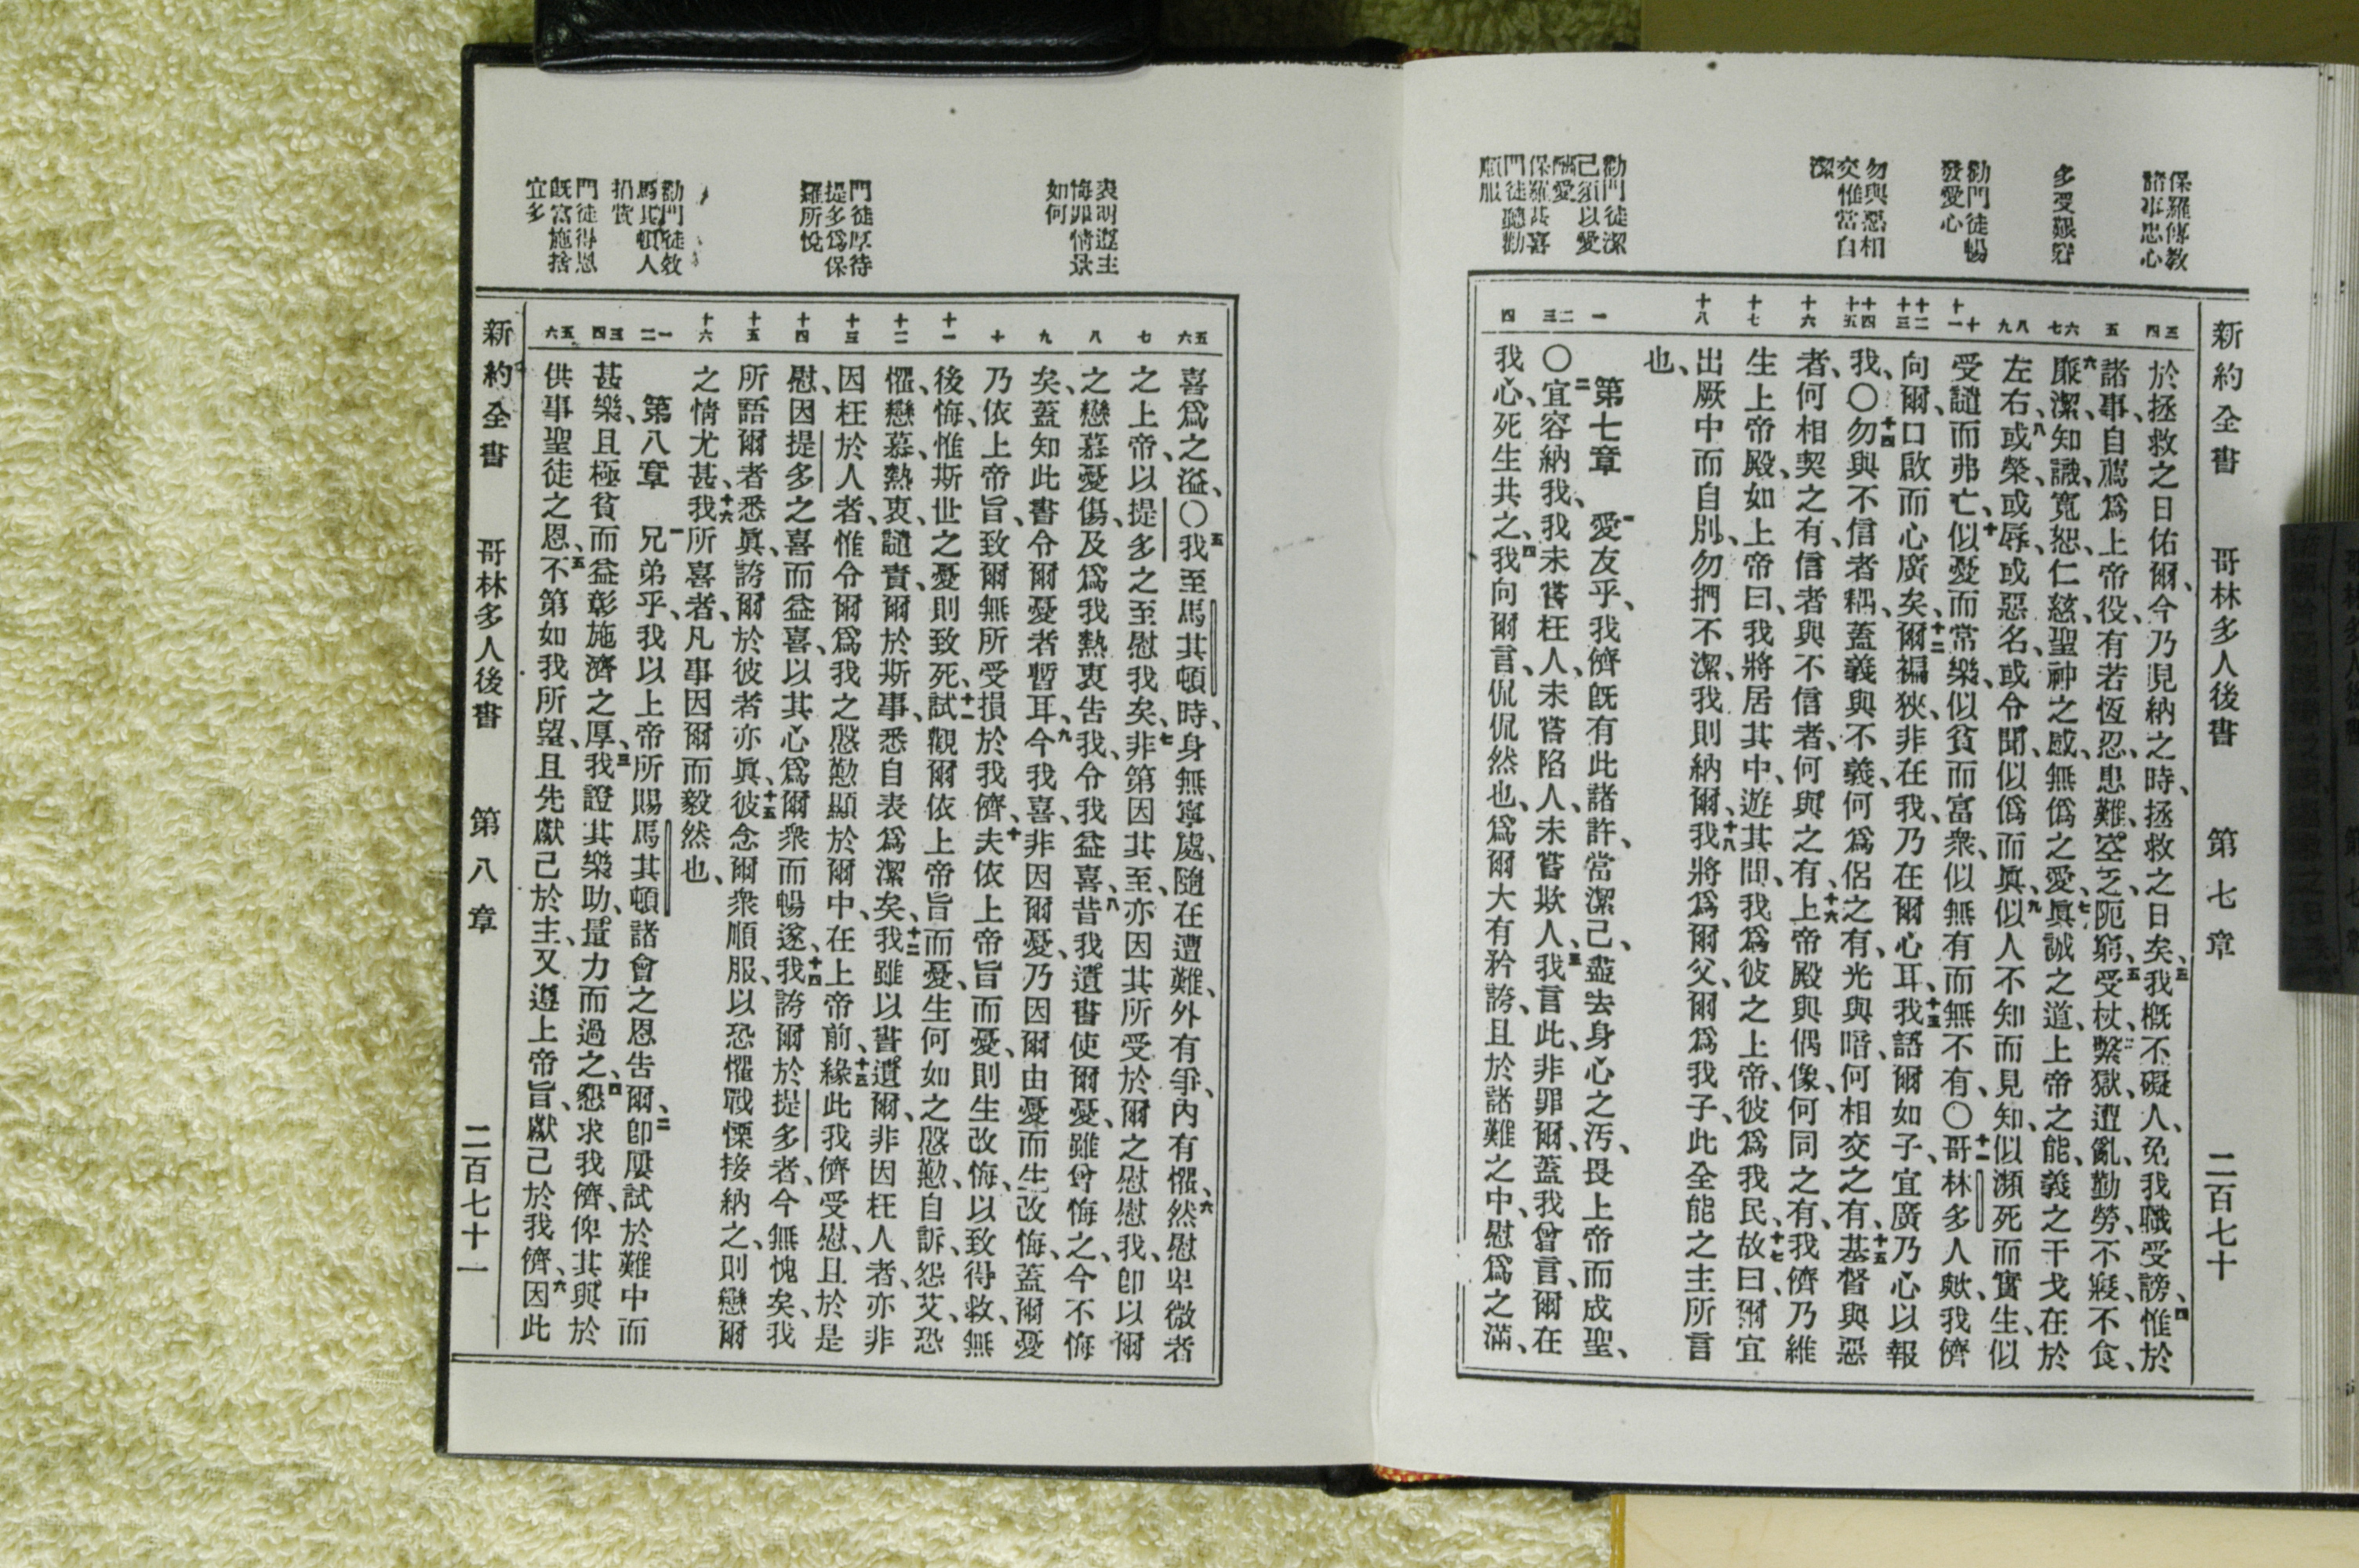 新約全書 哥林多人後書 第七章 二百七十
保羅傳教
諸事忠心
多受艱窘
勸門徒暢
發愛心
勿與惡相
交惟當自
潔
勸門徒潔
己須以愛
酬愛
保羅其喜
門徒聽勸
順服
三 四 五 六 七 八 九 十 十一 十二 十三 十四 十五 十六 十七 十八 一 二 三 四
於拯救之日佑爾、今乃見納之時、拯救之日矣、三我概不礙人、免我職受謗、四惟於
諸事、自薦爲上帝役、有若恆忍、患難、空乏、阨窮、五受杖、繫獄、遭亂、勤勞、不寢、不食、
六廉潔、知識、寬恕、仁慈、聖神之感、無僞之愛、七眞誠之道、上帝之能、義之干戈在於
左右、八或榮、或辱、或惡名、或令聞、似僞而眞、九似人不知而見知、似瀕死而實生、似
受譴而弗亡、十似憂而常樂、似貧而富衆、似無有而無不有、〇十一哥林多人歟、我儕
向爾、口啟而心廣矣、十二爾褊狹、非在我、乃在爾心耳、十三我語爾如子、宜廣乃心以報
我、〇十四勿與不信者耦、蓋義與不義、何爲侶之有、光與暗、何相交之有、十五基督與惡
者、何相契之有、信者與不信者、何與之有、十六上帝殿與偶像、何同之有、我儕乃維
生上帝殿、如上帝曰、我將居其中、遊其間、我爲彼之上帝、彼爲我民、十七故曰、爾宜
出厥中而自別、勿捫不潔、我則納爾、十八我將爲爾父、爾爲我子、此全能之主所言
也、
第七章 一愛友乎、我儕旣有此諸許、當潔己、盡去身心之汚、畏上帝而成聖、
〇二宜容納我、我未嘗枉人、未嘗陷人、未嘗欺人、三我言此、非罪爾、蓋我曾言、爾在
我心、死生共之、四我向爾言、侃侃然也、爲爾大有矜誇、且於諸難之中、慰爲之滿、
表明遵主
悔罪情景
如何
門徒厚待
提多爲保
羅所悅
勸門徒效
馬其頓人
捐貲
門徒得恩
旣富施捨
宜多
五 六 七 八 九 十 十一 十二 十三 十四 十五 十六 一 二 三 四 五 六
喜爲之溢、〇五我至馬其頓時、身無寧處、隨在遭難、外有爭、內有懼、六然慰卑微者
之上帝、以提多之至慰我矣、七非第因其至、亦因其所受於爾之慰慰我、卽以爾
之戀慕憂傷、及爲我熱衷告我、令我益喜、八昔我遺書使爾憂、雖曾悔之、今不悔
矣、蓋知此書令爾憂者暫耳、九今我喜、非因爾憂、乃因爾由憂而生改悔、蓋爾憂
乃依上帝旨、致爾無所受損於我儕、十夫依上帝旨而憂、則生改悔、以致得救、無
後悔、惟斯世之憂則致死、十一試觀爾依上帝旨而憂、生何如之慇懃、自訴、怨艾、恐
懼、戀慕、熱衷、譴責、爾於斯事、悉自表爲潔矣、十二我雖以書遺爾、非因枉人者、亦非
因枉於人者、惟令爾爲我之慇懃顯於爾中、在上帝前、十三緣此我儕受慰、且於是
慰、因提多之喜而益喜、以其心爲爾衆而暢遂、十四我誇爾於提多者、今無愧矣、我
所語爾者悉眞、誇爾於彼者亦眞、十五彼念爾衆順服、以恐懼戰慄接納之、則戀爾
之情尤甚、十六我所喜者、凡事因爾而毅然也、
第八章 一兄弟乎、我以上帝所賜馬其頓諸會之恩告爾、二卽屢試於難中而
甚樂、且極貧而益彰施濟之厚、三我證其樂助、量力而過之、四懇求我儕、俾其與於
供事聖徒之恩、五不第如我所望、且先獻己於主、又遵上帝旨、獻己於我儕、六因此
新約全書 哥林多人後書 第八章 二百七十一